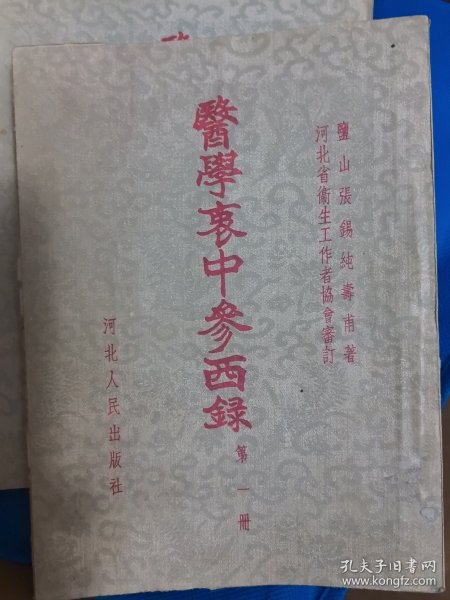 鹽山張錫純壽甫著
河北省衞生工作者協會審訂
醫學衷中參西録
第一冊
河北人民出版社
孔夫子旧书网
www.kongfz.com